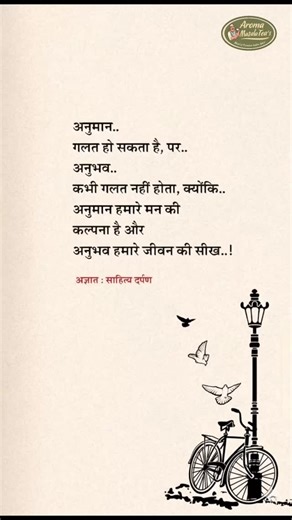 Aroma
Masala Tea's
अनुमान..
गलत हो सकता है, पर..
अनुभव..
कभी गलत नहीं होता, क्योंकि..
अनुमान हमारे मन की
कल्पना है और
अनुभव हमारे जीवन की सीख..!
अज्ञात : साहित्य दर्पण